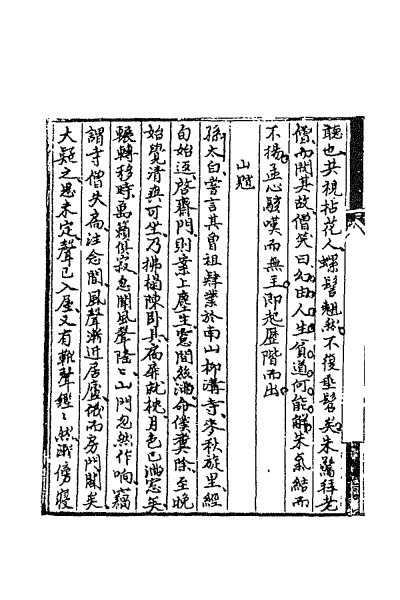 聽也共視拈花人螺髻翹然不復垂髫矣朱驚拜老
僧而問其故僧笑曰幻由人生貧道何能解朱氣結而
不揚孟心駭嘆而無主即起歷階而出
山魈
孫太白嘗言其曾祖肄業於南山柳溝寺麥秋旋里經
旬始返啓齋門則案上塵生窓間絲滿命僕糞除至晚
始覺清爽可坐乃拂榻陳卧具扃扉就枕月色已滿窓矣
輾轉移時萬籟俱寂忽聞風聲隆〻山門忽然作响竊
謂寺僧失扃注念間風聲漸近居廬俄而房門闢矣
大疑之思未定聲已入屋又有靴聲鏗〻然漸傍寢